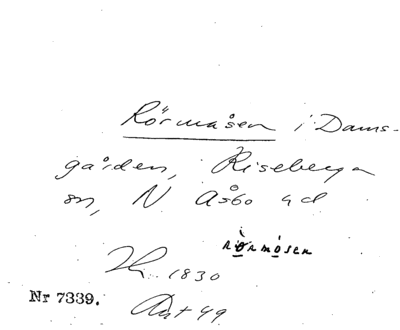 Rörmåsen i Dams-
gården, Riseberga
sn, N Åsbo hd
rörmosen
1830
Nr 7339.
49